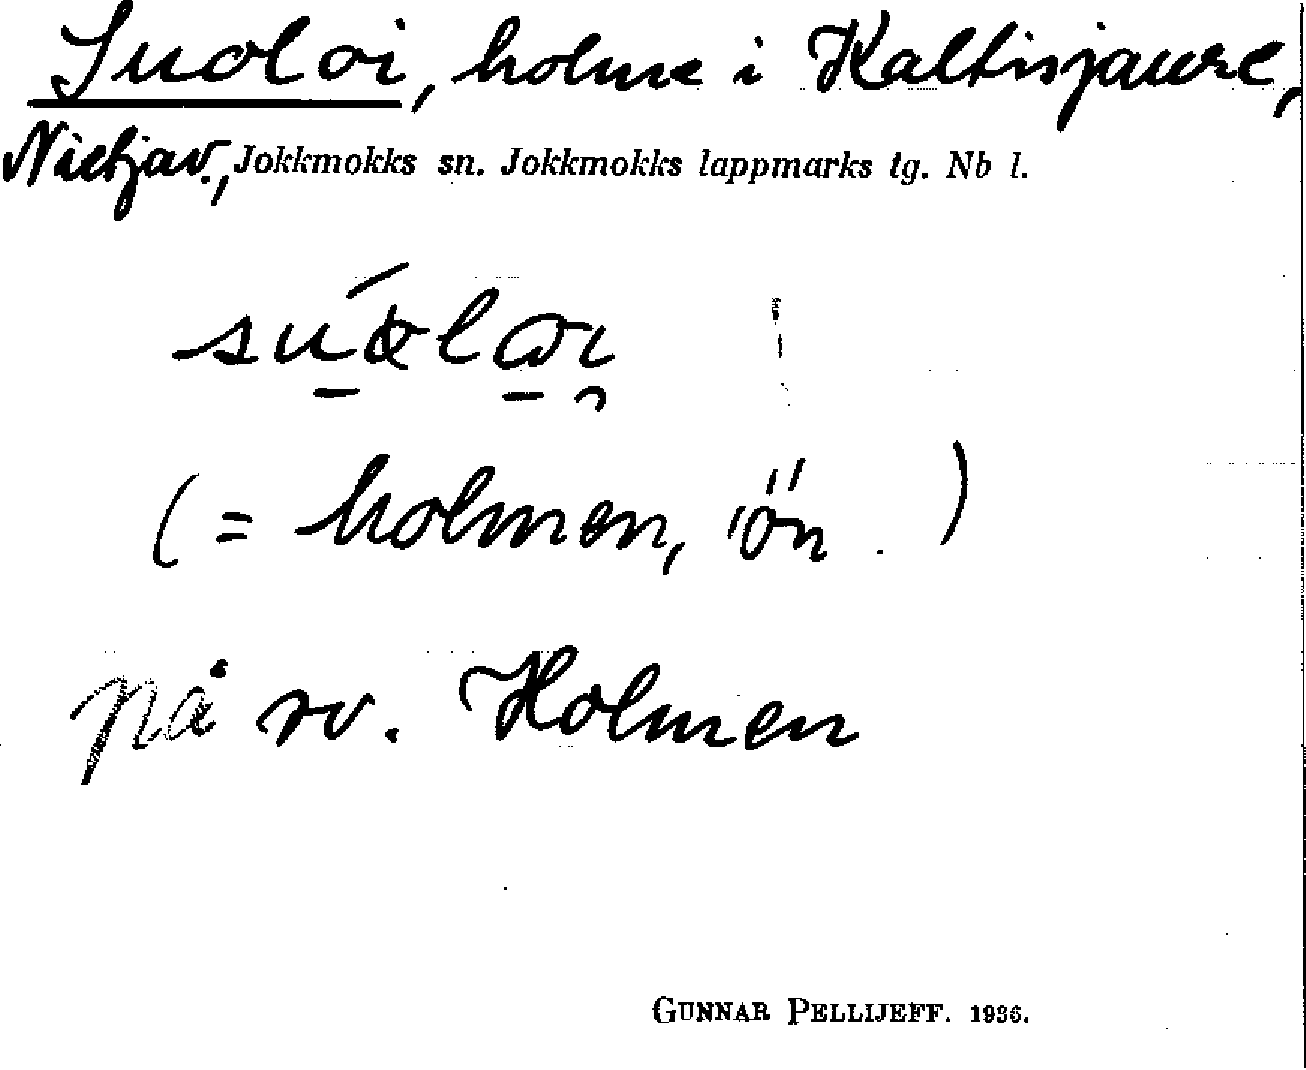 Suoloi, holme i Kaltisjaure,
Nietjav., Jokkmokks sn. Jokkmokks lappmarks tg. Nb l.
(= holmen, ön.)
på sv. Holmen
GUNNAR PELLIJEFF. 1936.